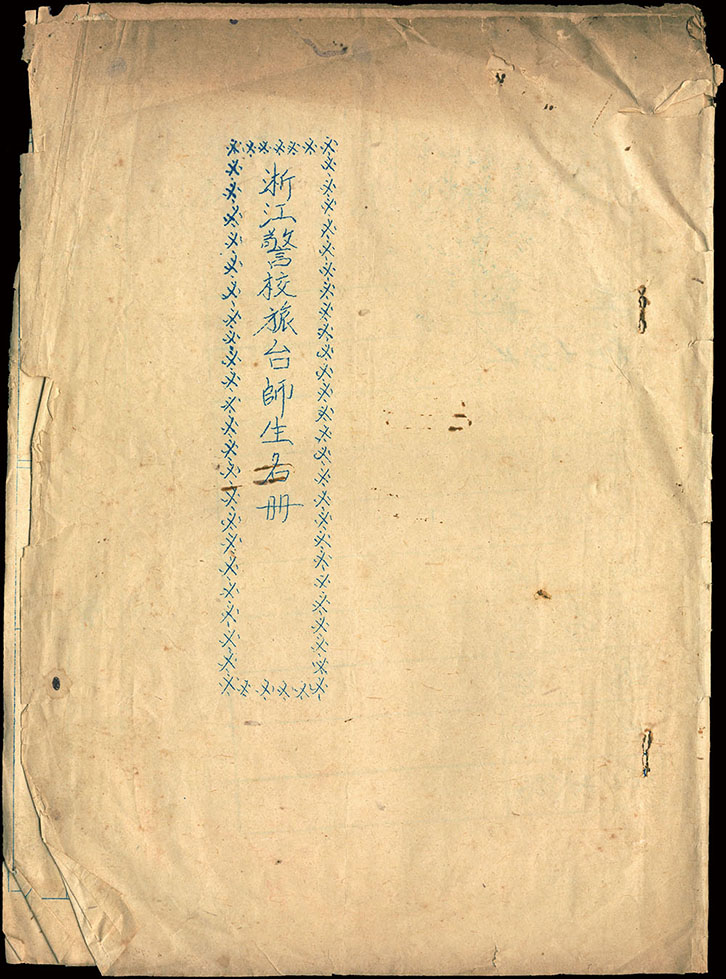 浙江警校旅台師生名册